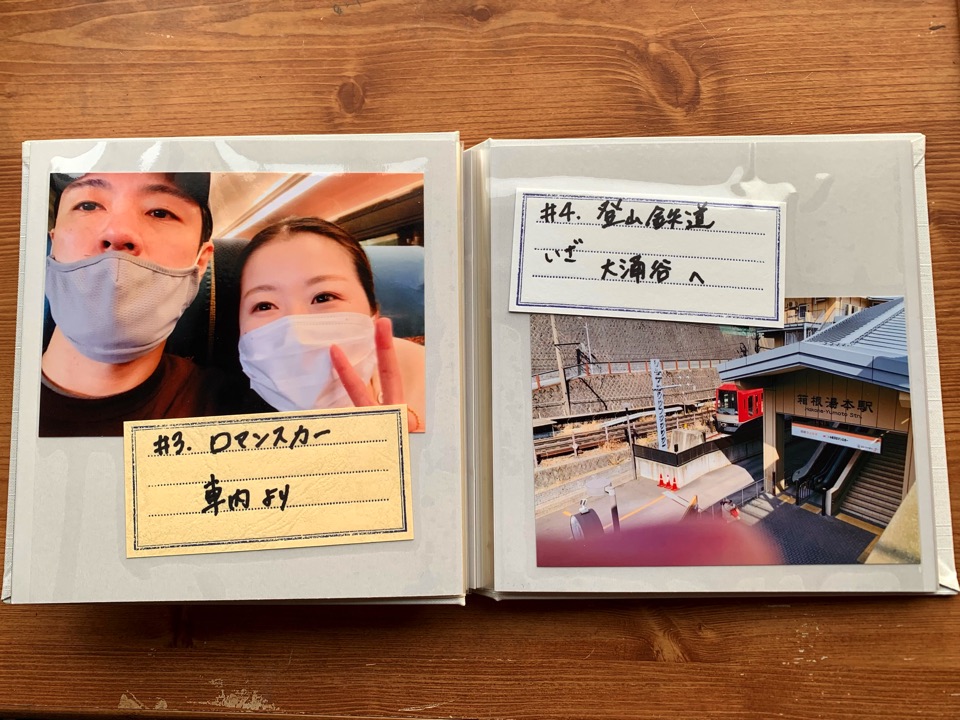 #3. ロマンスカー
車内より
#4. 登山鉄道
いざ
大涌谷へ
箱根湯本駅
Hakone-Yumoto Sta.